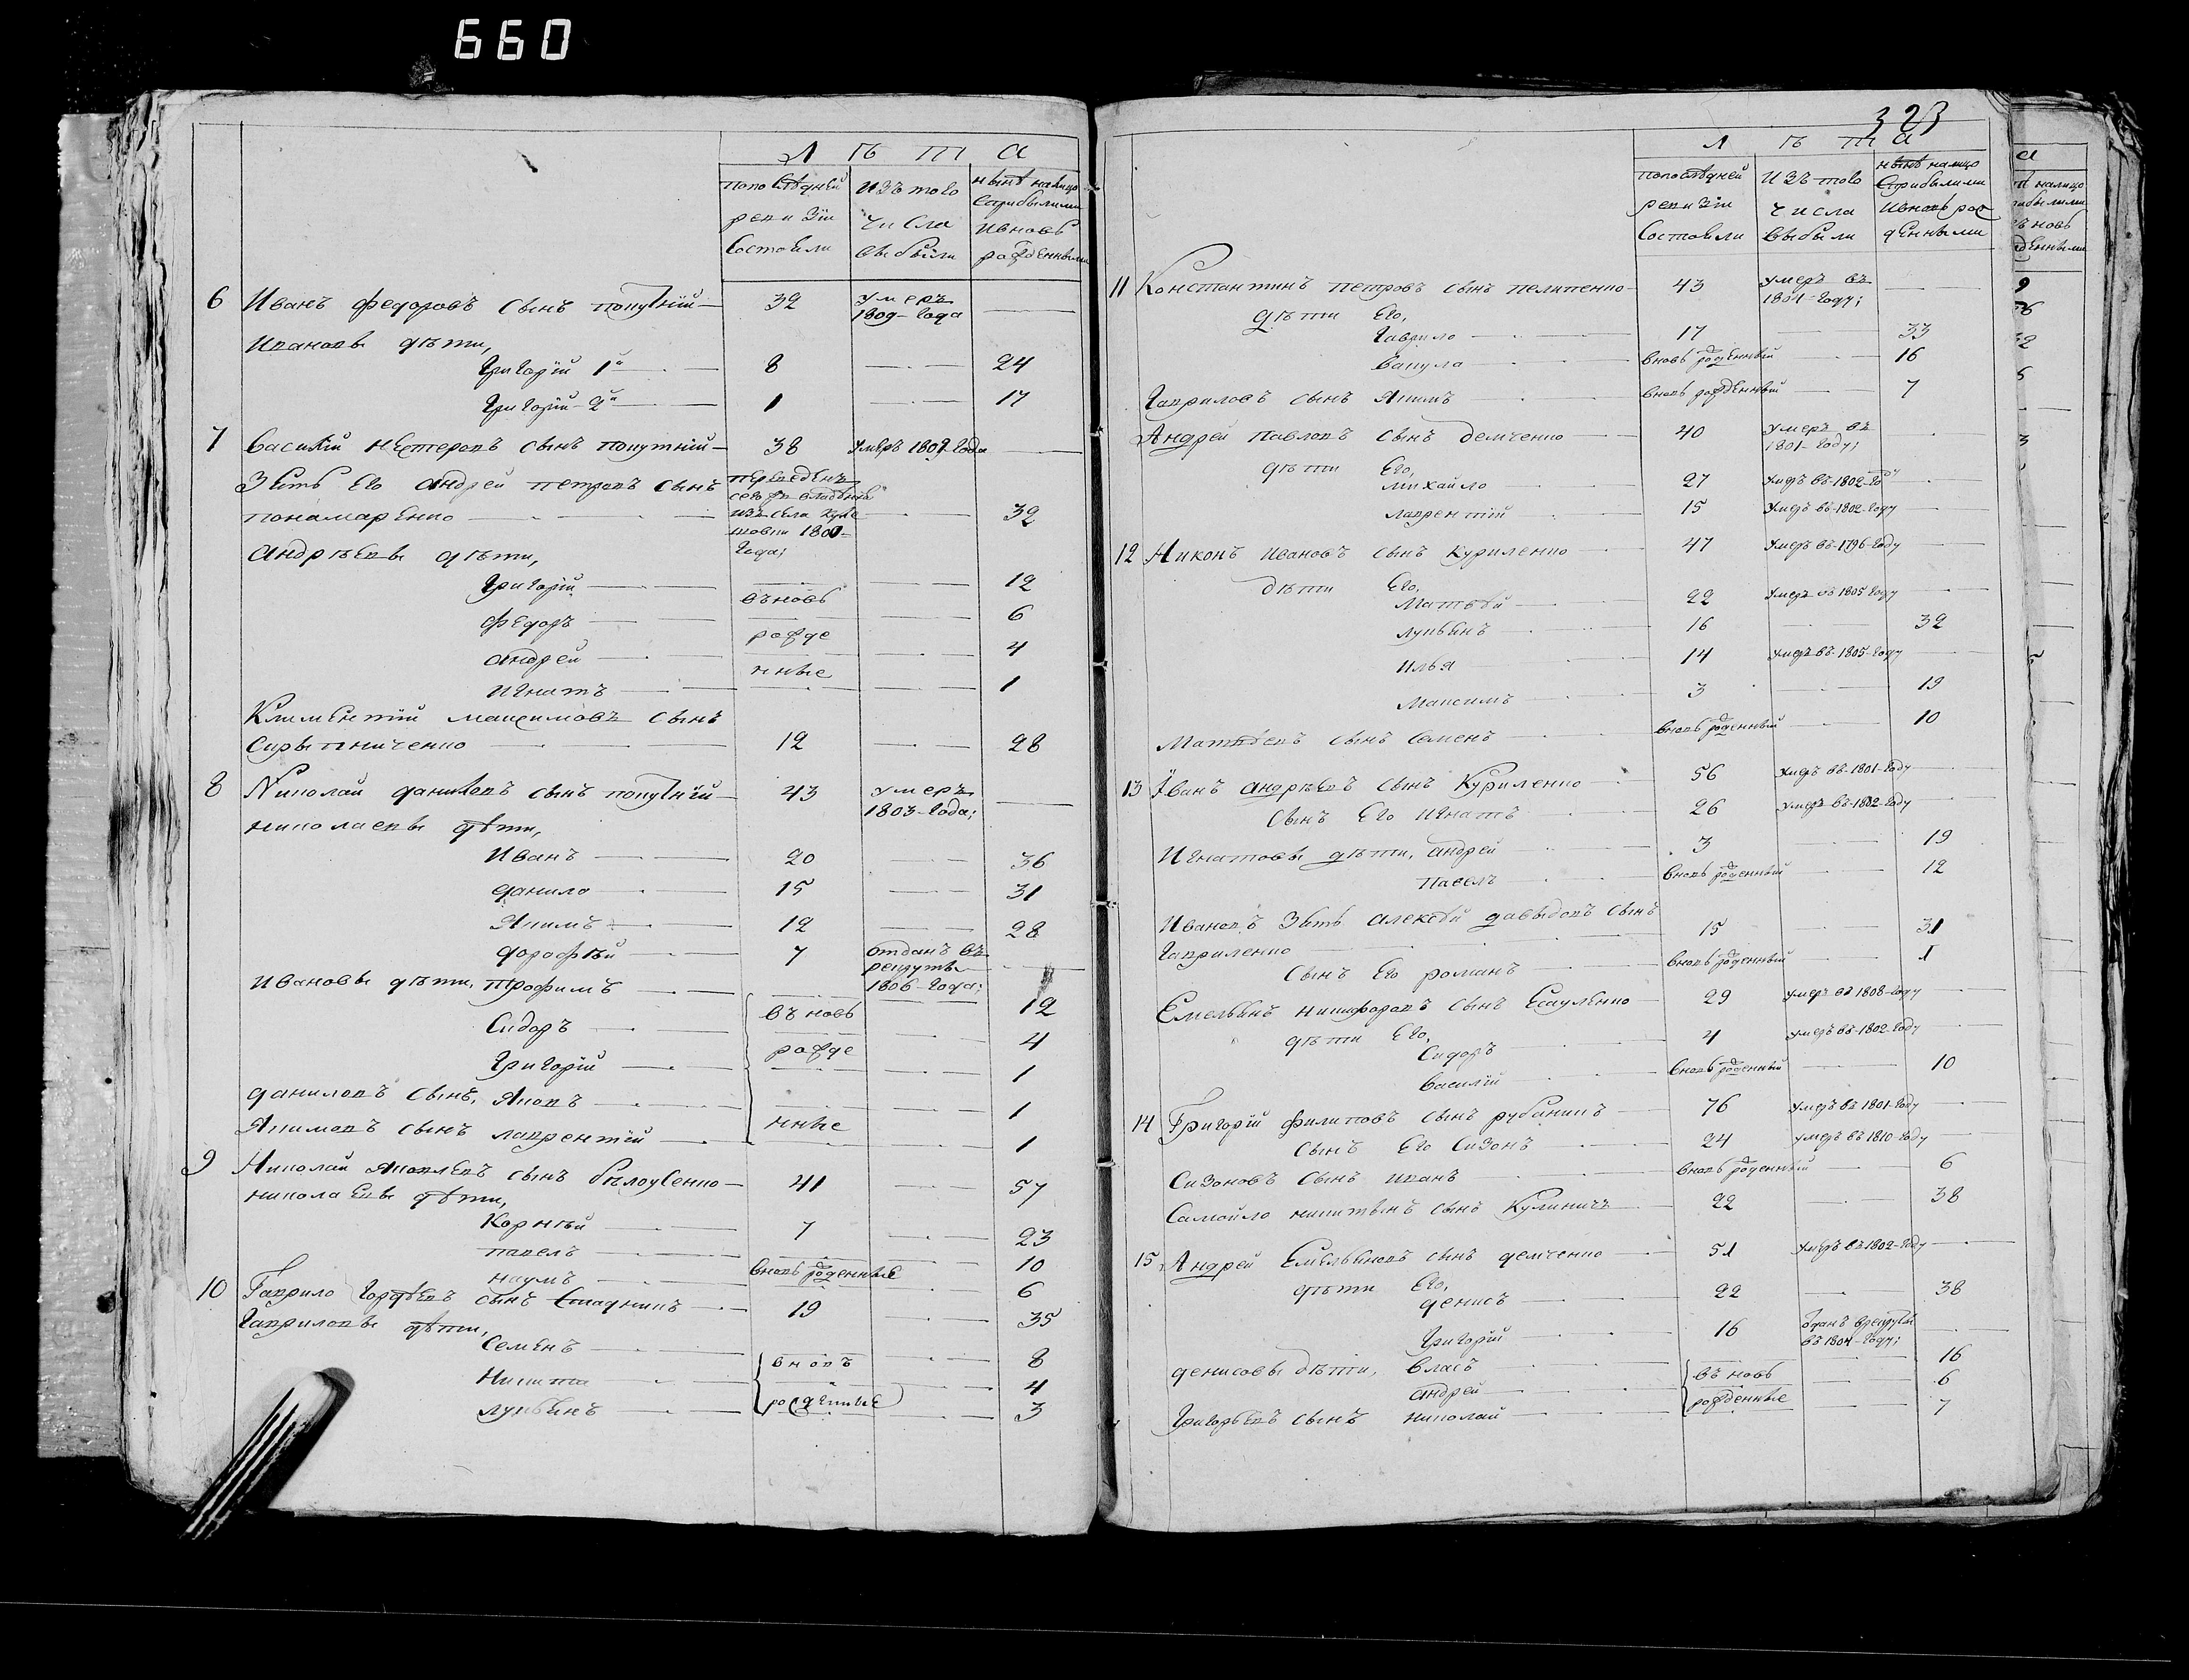 660
Л ѣ т а
по последней ревизіи состояли
изъ того числа выбыли
нынѣ налицо с прибылыми и вновь рожденными
6 Иванъ Федоровъ сынъ попутній — 32 умеръ 1809-года —
Ивановы дѣти,
Григорій 1й — 8 — 24
Григорій 2й — 1 — 17
7 Василій нестеровъ сынъ попутній — 38 умеръ 1809-года —
Зять его андрей петровъ сынъ переведенъ
пономаренко — изъ села 1800-года; — 32
андрѣевы дѣти,
Григорій — — 12
Федоръ — въновь — 6
андрей — рожде — 4
Игнатъ — нные — 1
Климентій максимовъ сынъ
Сыр — 12 — 28
8 Николай даниловъ сынъ попутній — 43 умеръ 1803-года; —
николаевы дѣти,
Иванъ — 20 — 36
данило — 15 — 31
Якимъ — 12 — 28
дорофѣй — 7 отданъ въ рекруты 1806-года; —
Ивановы дѣти, трофимъ — 12
Сидоръ — въновь — 4
Григорій — рожде — 1
даниловъ сынъ, Яковъ — 1
Якимовъ сынъ лаврентій — нные — 1
9 Николай яковлевъ сынъ бѣлоусенко — 41 — 57
николаевы дѣти,
Корнѣй — 7 — 23
павелъ — 10
наумъ — вновь рожденные — 6
10 Гаврило гордѣевъ сынъ — 19 — 35
Гавриловы дѣти,
Семенъ — 8
Никита — вновь — 4
лукьянъ — рожденные — 3
323
Л ѣ т а
по последней ревизіи состояли
изъ того числа выбыли
нынѣ налицо с прибылыми и вновь рожденными
11 Константинъ петровъ сынъ пелипенко — 43 умеръ въ 1801-году; —
дѣти его,
Гаврило — 17 — 33
вакула — вновь рожденный — 16
Гавриловъ сынъ Якимъ — вновь рожденный — 7
Андрей павловъ сынъ демченко — 40 умеръ въ 1801-году; —
дѣти его,
михайло — 27 умеръ въ-1802-году —
лаврентій — 15 умеръ въ-1802-году —
12 Никонъ ивановъ сынъ куриленко — 47 умеръ въ-1796-году —
дѣти его,
Матвѣй — 22 умеръ въ 1805 году —
лукьянъ — 16 — 32
илья — 14 умеръ въ-1805-году —
максимъ — 3 — 19
Матвѣевъ сынъ семенъ — вновь рожденный — 10
13 Иванъ андрѣевъ сынъ Куриленко — 56 умеръ въ-1801-году —
сынъ его игнатъ — 26 умеръ въ-1802-году —
Игнатовы дѣти, андрей — 3 — 19
павелъ — вновь рожденный — 12
Ивановъ зять алексѣй давыдовъ сынъ
Гавриленко — 15 — 31
сынъ его романъ — вновь рожденный — 1
Емельянъ никифоровъ сынъ есауленко — 29 умеръ въ 1808-году —
дѣти его,
Сидоръ — 4 умеръ въ-1802-году —
василій — вновь рожденный — 10
14 Григорій филиповъ сынъ рубаникъ — 76 умеръ въ 1801-году —
сынъ его Сизонъ — 24 умеръ въ 1810-году —
Сизоновъ сынъ иванъ — вновь рожденный — 6
Самойло никитинъ сынъ Кулиничъ — 22 — 38
15 Андрей Емельяновъ сынъ демченко — 51 умеръ въ 1802-году —
дѣти его,
денисъ — 22 — 38
Григорій — 16 отданъ в рекруты въ 1804-году; —
денисовы дѣти, власъ — въновь — 16
андрей — рожденные — 6
Григорьевъ сынъ николай — 7